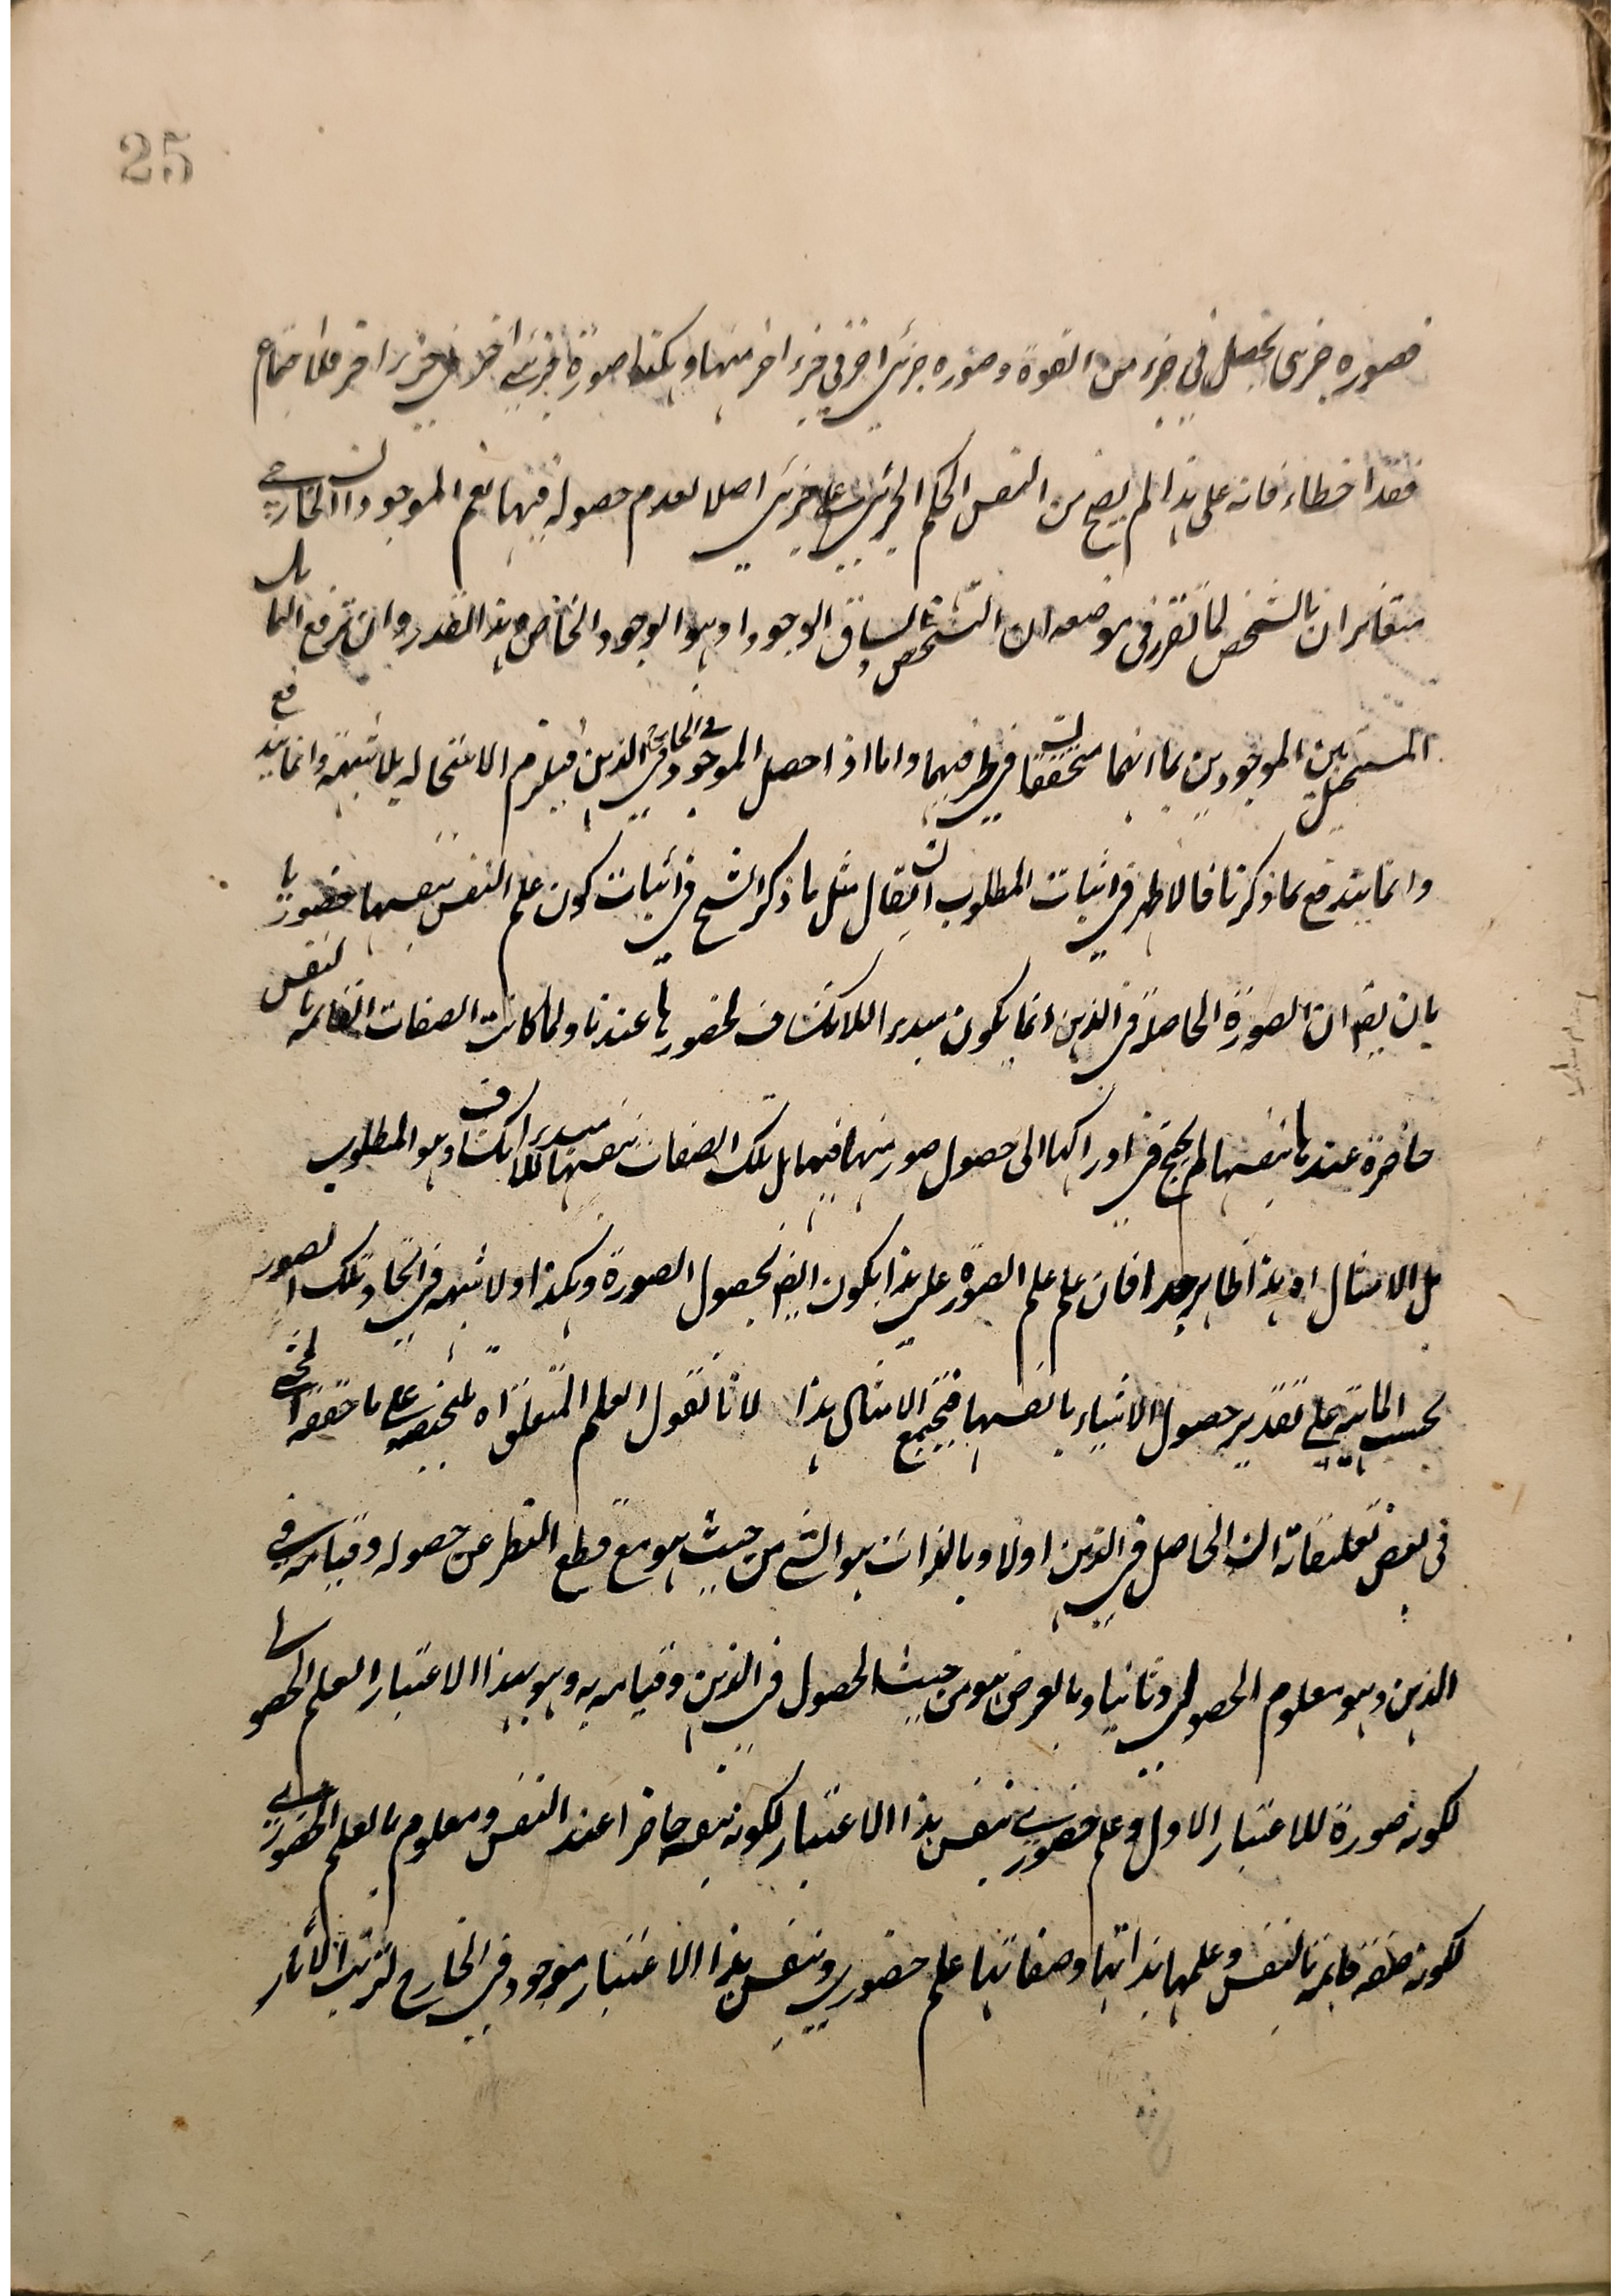 25
فصورة جزئى تحصل فى جزء من القوة وصورة جزئى اخر فى جزء اخر منها وهكذا صورة جزئى اخر فى جزء اخر فلا اجتماع
فقد اخطاء فانه على هذا لم يصح من النفس الحكم الجزئى على جزئى اصلا لعدم حصوله فيها نعم الموجود ان الخارجى
متغايران بالشخص لما تقرر فى موضعه ان التشخص يساوق الوجود او هو الوجود الخاص وبهذا القدر وان ترفع التماثل
المستحيل بين الموجودين بما انهما متحققان فى ظرفيهما واما اذا حصل الموجود فى الخارج فى الذهن فيلزم الاستحالة بلا شبهة وانما يندفع
وانما يندفع بما ذكرنا فالاظهر فى اثبات المطلوب ان يقال مثل ما ذكر الشيخ فى اثبات كون علم النفس بنفسها حضوريا
بان يقال ان الصورة الحاصلة فى الذهن انما يكون مبدء اللانكشاف لحضورها عندنا ولما كانت الصفات القائمة بالنفس
حاضرة عندها بنفسها لم يحتج فى ادراكها الى حصول صور منها فيها بل تلك الصفات بنفسها مبدء للانكشاف وهو المطلوب
بل الامثال اه هذا ظاهر جدا فان علم علم الصورة على هذا يكون ايضا بحصول الصورة وهكذا ولا شبهة فى اتحاد تلك الصور
بحسب الماهية على تقدير حصول الاشياء بانفسها فتجتمع الامثال هذا لانا نقول العلم المتعلق اه تلخيصه على ما حققه المحشى
فى بعض تعليقاته ان الحاصل فى الذهن اولا وبالذات هو الشئ من حيث هو مع قطع النظر عن حصوله وقيامه فى
الذهن وهو معلوم الحصولى وثانيا وبالعرض هو من حيث الحصول فى الذهن وقيامه به وهو بهذا الاعتبار العلم الحصولى
لكونه صورة للاعتبار الاول وعلم حضورى بنفس هذا الاعتبار لكونه بنفسه حاضرا عند النفس ومعلوم بالعلم الحضورى
لكونه صفة قائمة بالنفس وعلمها بذاتها وصفاتها علم حضورى وبنفس هذا الاعتبار موجود فى الخارج لترتب الاثار